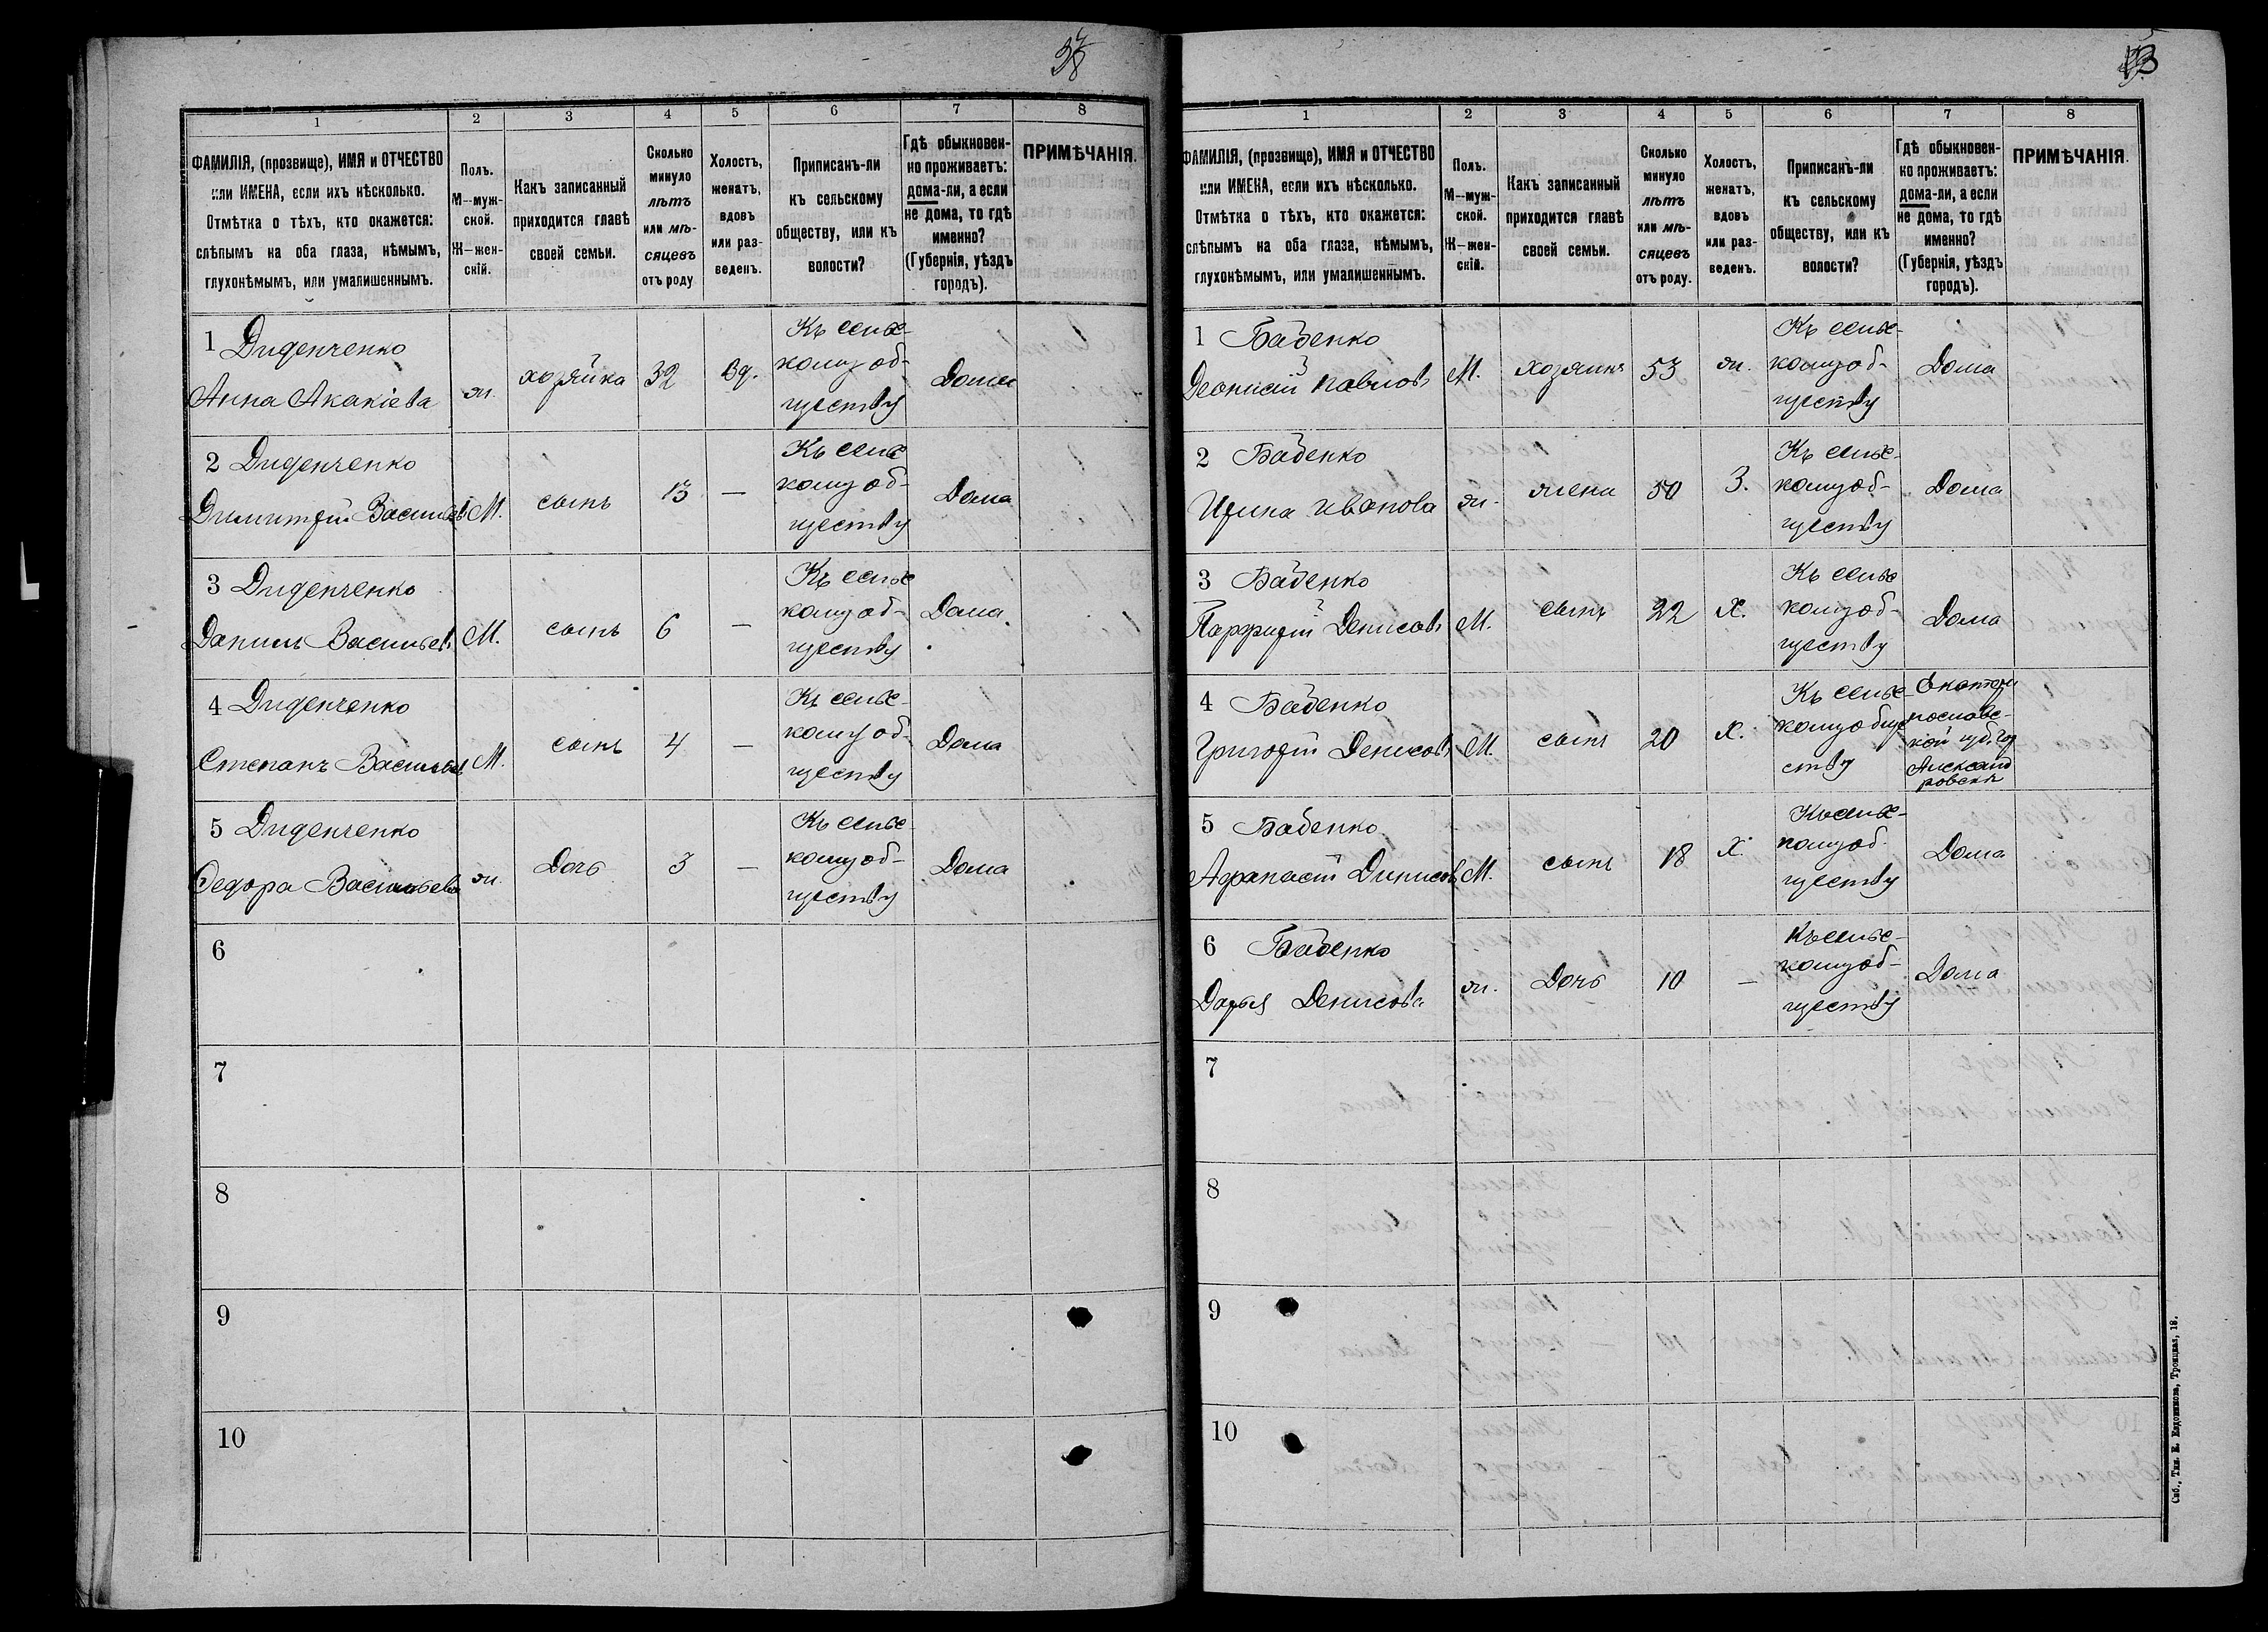 38
1 2 3 4 5 6 7 8
ФАМИЛІЯ, (прозвище), ИМЯ и ОТЧЕСТВО
или ИМЕНА, если ихъ нѣсколько.
Отмѣтка о тѣхъ, кто окажется:
слѣпымъ на оба глаза, нѣмымъ,
глухонѣмымъ, или умалишеннымъ.
Полъ.
М—муж-
ской.
Ж—жен-
скій.
Какъ записанный
приходится главѣ
своей семьи.
Сколько
минуло
лѣтъ
или мѣ-
сяцевъ
отъ роду
Холостъ,
женатъ,
вдовъ
или раз-
веденъ.
Приписанъ-ли
къ сельскому
обществу, или къ
волости?
Гдѣ обыкновен-
но проживаетъ:
дома-ли, а если
не дома, то гдѣ
именно?
(Губернія, уѣздъ
городъ).
ПРИМѢЧАНІЯ.
1 Диденченко
Анна Акакіева
ж.
хозяйка
32
Вд.
Къ сельс-
кому об-
ществу
Дома
2 Диденченко
Димитрій Васильевъ
М.
сынъ
13
—
Къ сельс
кому об-
ществу
Дома
3 Диденченко
Даниилъ Васильевъ
М.
сынъ
6
—
Къ сельс
кому об-
ществу
Дома
4 Диденченко
Степанъ Васильевъ
М.
сынъ
4
—
Къ сельс-
кому об-
ществу
Дома
5 Диденченко
Федора Васильева
ж.
Дочь
3
—
Къ сельс-
кому об-
ществу
Дома
6
7
8
9
10
1 2 3 4 5 6 7 8
ФАМИЛІЯ, (прозвище), ИМЯ и ОТЧЕСТВО
или ИМЕНА, если ихъ нѣсколько.
Отмѣтка о тѣхъ, кто окажется:
слѣпымъ на оба глаза, нѣмымъ,
глухонѣмымъ, или умалишеннымъ.
Полъ.
М—муж-
ской.
Ж—жен-
скій.
Какъ записанный
приходится главѣ
своей семьи.
Сколько
минуло
лѣтъ
или мѣ-
сяцевъ
отъ роду.
Холостъ,
женатъ,
вдовъ
или раз-
веденъ.
Приписанъ-ли
къ сельскому
обществу, или къ
волости?
Гдѣ обыкновен-
но проживаетъ:
дома-ли, а если
не дома, то гдѣ
именно?
(Губернія, уѣздъ
городъ).
ПРИМѢЧАНІЯ.
1 Бабенко
Деонисій Павловъ
М.
хозяинъ
53
ж.
Къ сельс-
кому об-
ществу
Дома
2 Бабенко
Ирина Иванова
ж.
жена
50
З.
Къ сельс-
кому об-
ществу
Дома
3 Бабенко
Парфирій Денисовъ
М.
сынъ
22
Х.
Къ сельс
кому об-
ществу
Дома
4 Бабенко
Григорій Денисовъ
М.
сынъ
20
Х.
Къ сельс-
кому обще
ству
Екатери
нославс-
кой губ. гор
Александ
ровскъ
5 Бабенко
Афанасій Динисовъ
М.
сынъ
18
Х.
Къ сельс-
кому об-
ществу
Дома
6 Бабенко
Дарья Денисова
ж.
Дочь
10
—
Къ сельс-
кому об-
ществу
Дома
7
8
9
10
Спб., Тип. Е. Евдокимова, Троицкая, 18.